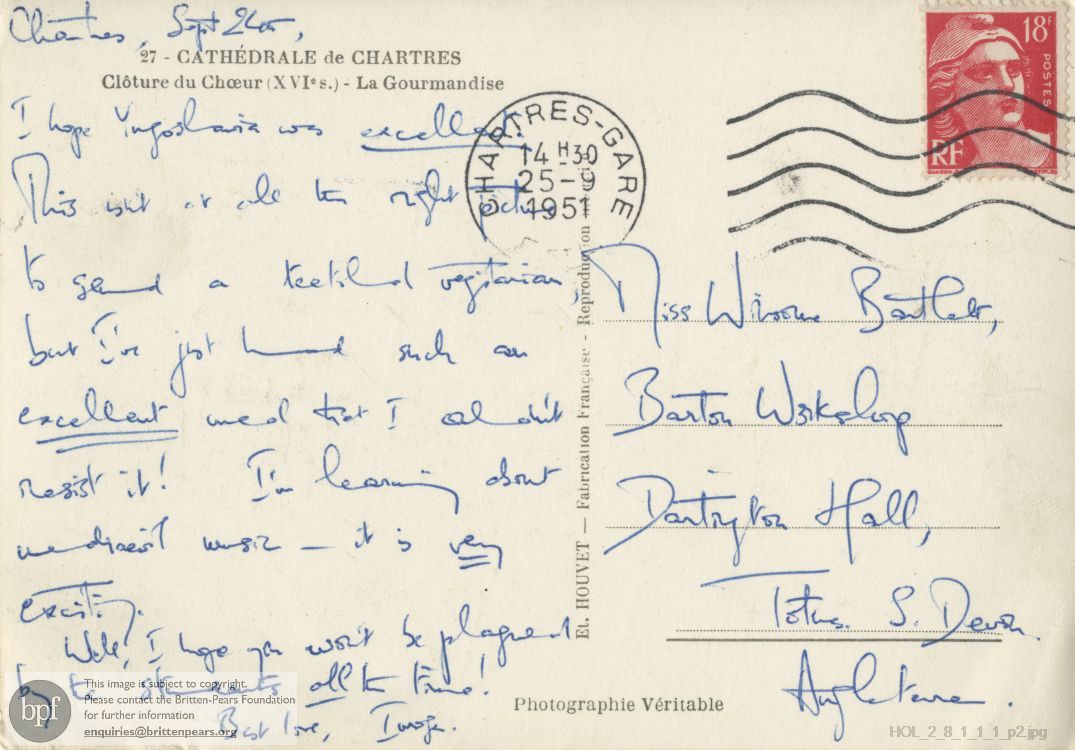 Chartres, Sept 24th,
27 - CATHÉDRALE de CHARTRES
Clôture du Chœur (XVIe s.) - La Gourmandise
I hope Yugoslavia was excellent.
This isn't at all the right picture
to send a teetotal vegetarian,
but I've just had such an
excellent meal that I couldn't
resist it! I'm learning about
mediaeval music — it is very
exciting.
Well, I hope you won't be plagued
by the students all the time!
Best love, Imogen.
CHARTRES-GARE
14 H 30
25-9
1951
18F
POSTES
RF
El. HOUVET — Fabrication Française - Reproduction
Miss Winsome Bartlett,
Barton Workshop
Dartington Hall,
Totnes. S. Devon.
Angleterre.
Photographie Véritable
bpf
This image is subject to copyright.
Please contact the Britten-Pears Foundation
for further information
enquiries@brittenpears.org
HOL_2_8_1_1_1_p2.jpg